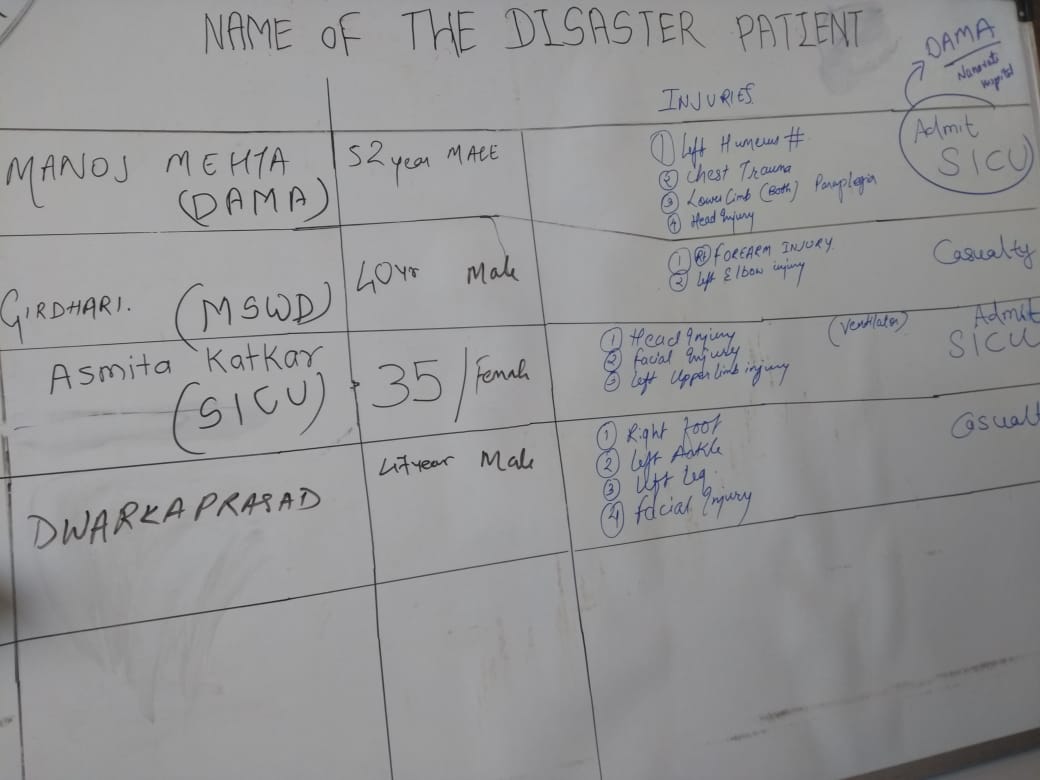 NAME OF THE DISASTER PATIENT
DAMA
Nanavati
Hospital
INJURIES
MANOJ MEHTA
(DAMA)
52 year MALE
① Left Humerus #
② Chest Trauma
③ Lower Limb (Both) Paraplegia
④ Head Injury
Admit
SICU
GIRDHARI. (MSWD)
40 yr Male
① (Rt) FOREARM INJURY
② Left Elbow injury
Casualty
Asmita Katkar
(SICU)
35/Female
① Head Injury
② Facial Injury
③ Left Upper limb injury
(Ventilator)
Admit
SICU
DWARKAPRASAD
47 year Male
① Right Foot
② Left Ankle
③ Left Leg.
④ Facial Injury
Casualt